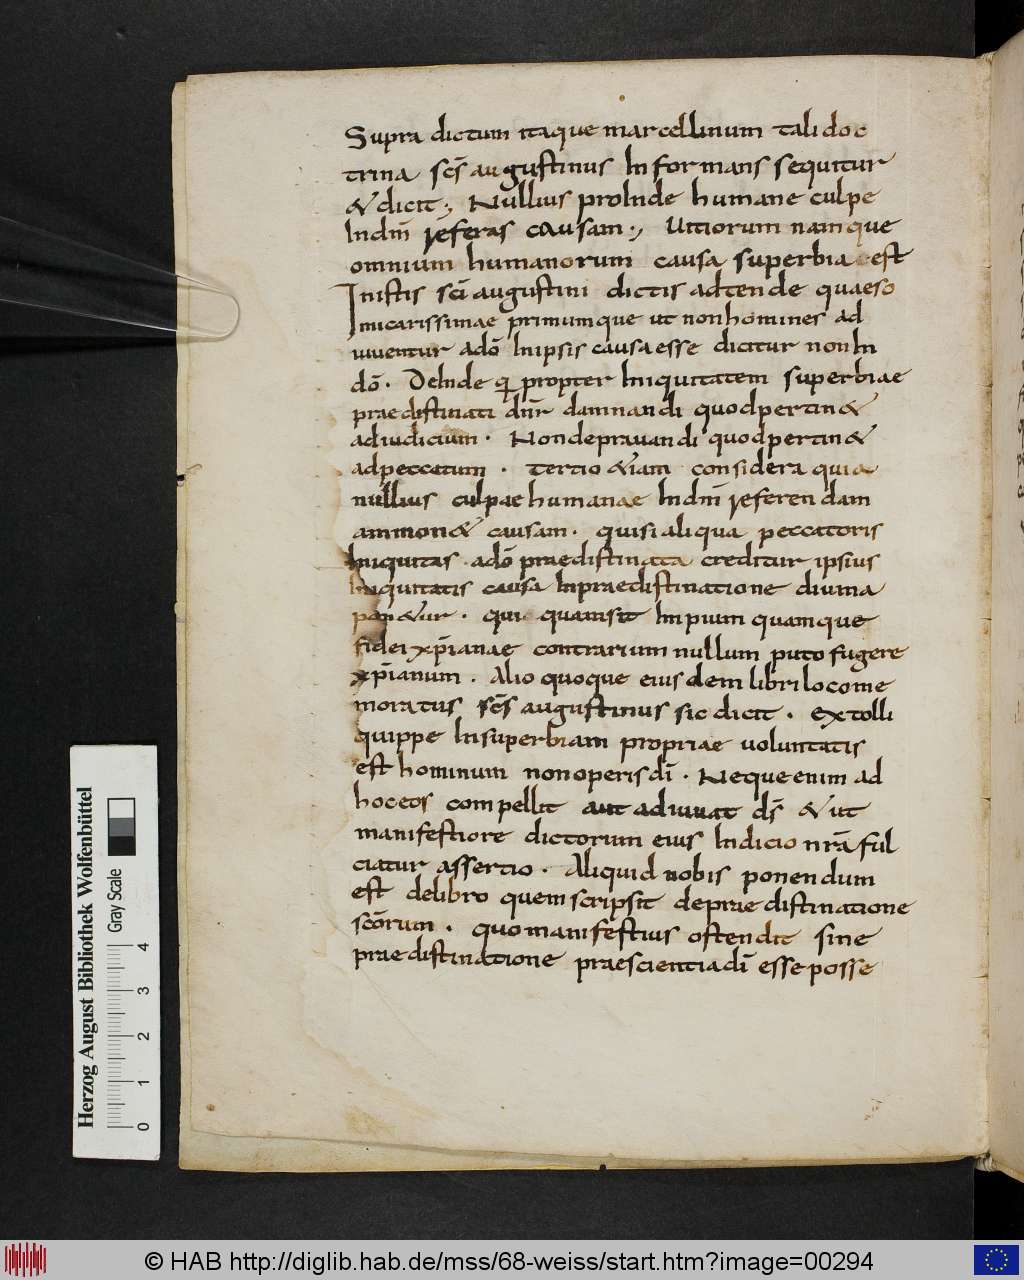 Supra dictum itaque marcellinum tali doc
trina scs̄ augustinus Informans sequitur
& dicit; Nullius proInde humane culpe
Indm̄ referas causam; Uitiorum namque
omnium humanorum causa superbia est
Inistis sci̅ augustini dictis adtende quaeso
micarissimae primumque ut nonhomines ad
uiuentur adō Inipsis causaesse dicitur nonIn
dō. DeInde qi̅ propter Iniquitatem superbiae
praedistinati dn̄r damnandi quodpertin&
adiudicium. Nondeprauandi quodpertin&
adpeccatum. tertio &iam considera quia
nullius culpae humanae Indm̄ referendam
ammon& causam. quisialiqua peccatoris
Iniquitas adō praedistinata creditur ipsius
Iniquitatis causa Inpraedistinatione diuina
pon&ur. qui quamsit Impium quamque
fidei xp̄ianae contrarium nullum puto fugere
xp̄ianum. Alio quoque eiusdem libri locome
moratus scs̄ augustinus sic dicit. extolli
quippe Insuperbiam propriae uoluntatis
est hominum nonoperisdi̅. Nequeenim ad
hoceos compellit aut adiuuat ds̄ & ut
manifestiore dictorum eius Indicio nrā ful
ciatur assertio. Aliquid nobis ponendum
est delibro quem scripsit depraedistinatione
scōrum. quomanifestius ostendit sine
praedistinatione praescientiadi̅ esse posse
Herzog August Bibliothek Wolfenbüttel
Gray Scale
0 1 2 3 4
© HAB http://diglib.hab.de/mss/68-weiss/start.htm?image=00294